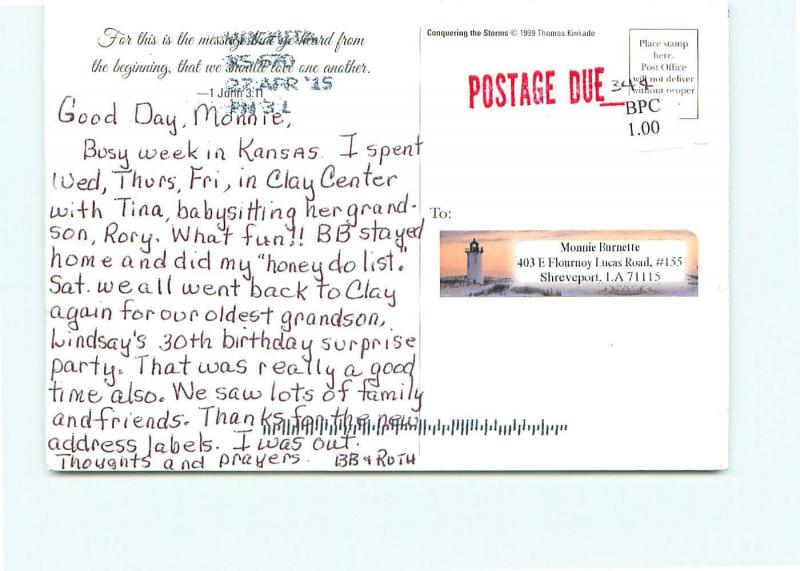 For this is the message that ye heard from
the beginning, that we should love one another.
—1 John 3:11
27 APR '15
PM 3 L
Good Day, Monnie,
Busy week in Kansas. I spent
Wed, Thurs, Fri, in Clay Center
with Tina, babysitting her grand-
son, Rory. What fun!! BB stayed
home and did my "honey do list."
Sat. we all went back to Clay
again for our oldest grandson,
Lindsay's 30th birthday surprise
party. That was really a good
time also. We saw lots of family
and friends. Thanks for the new
address labels. I was out.
Thoughts and prayers. BB & RUTH
Conquering the Storms © 1999 Thomas Kinkade
Place stamp
here.
Post Office
will not deliver
without proper
POSTAGE DUE 34¢
BPC
1.00
To:
Monnie Burnette
403 E Flournoy Lucas Road, #155
Shreveport, LA 71115